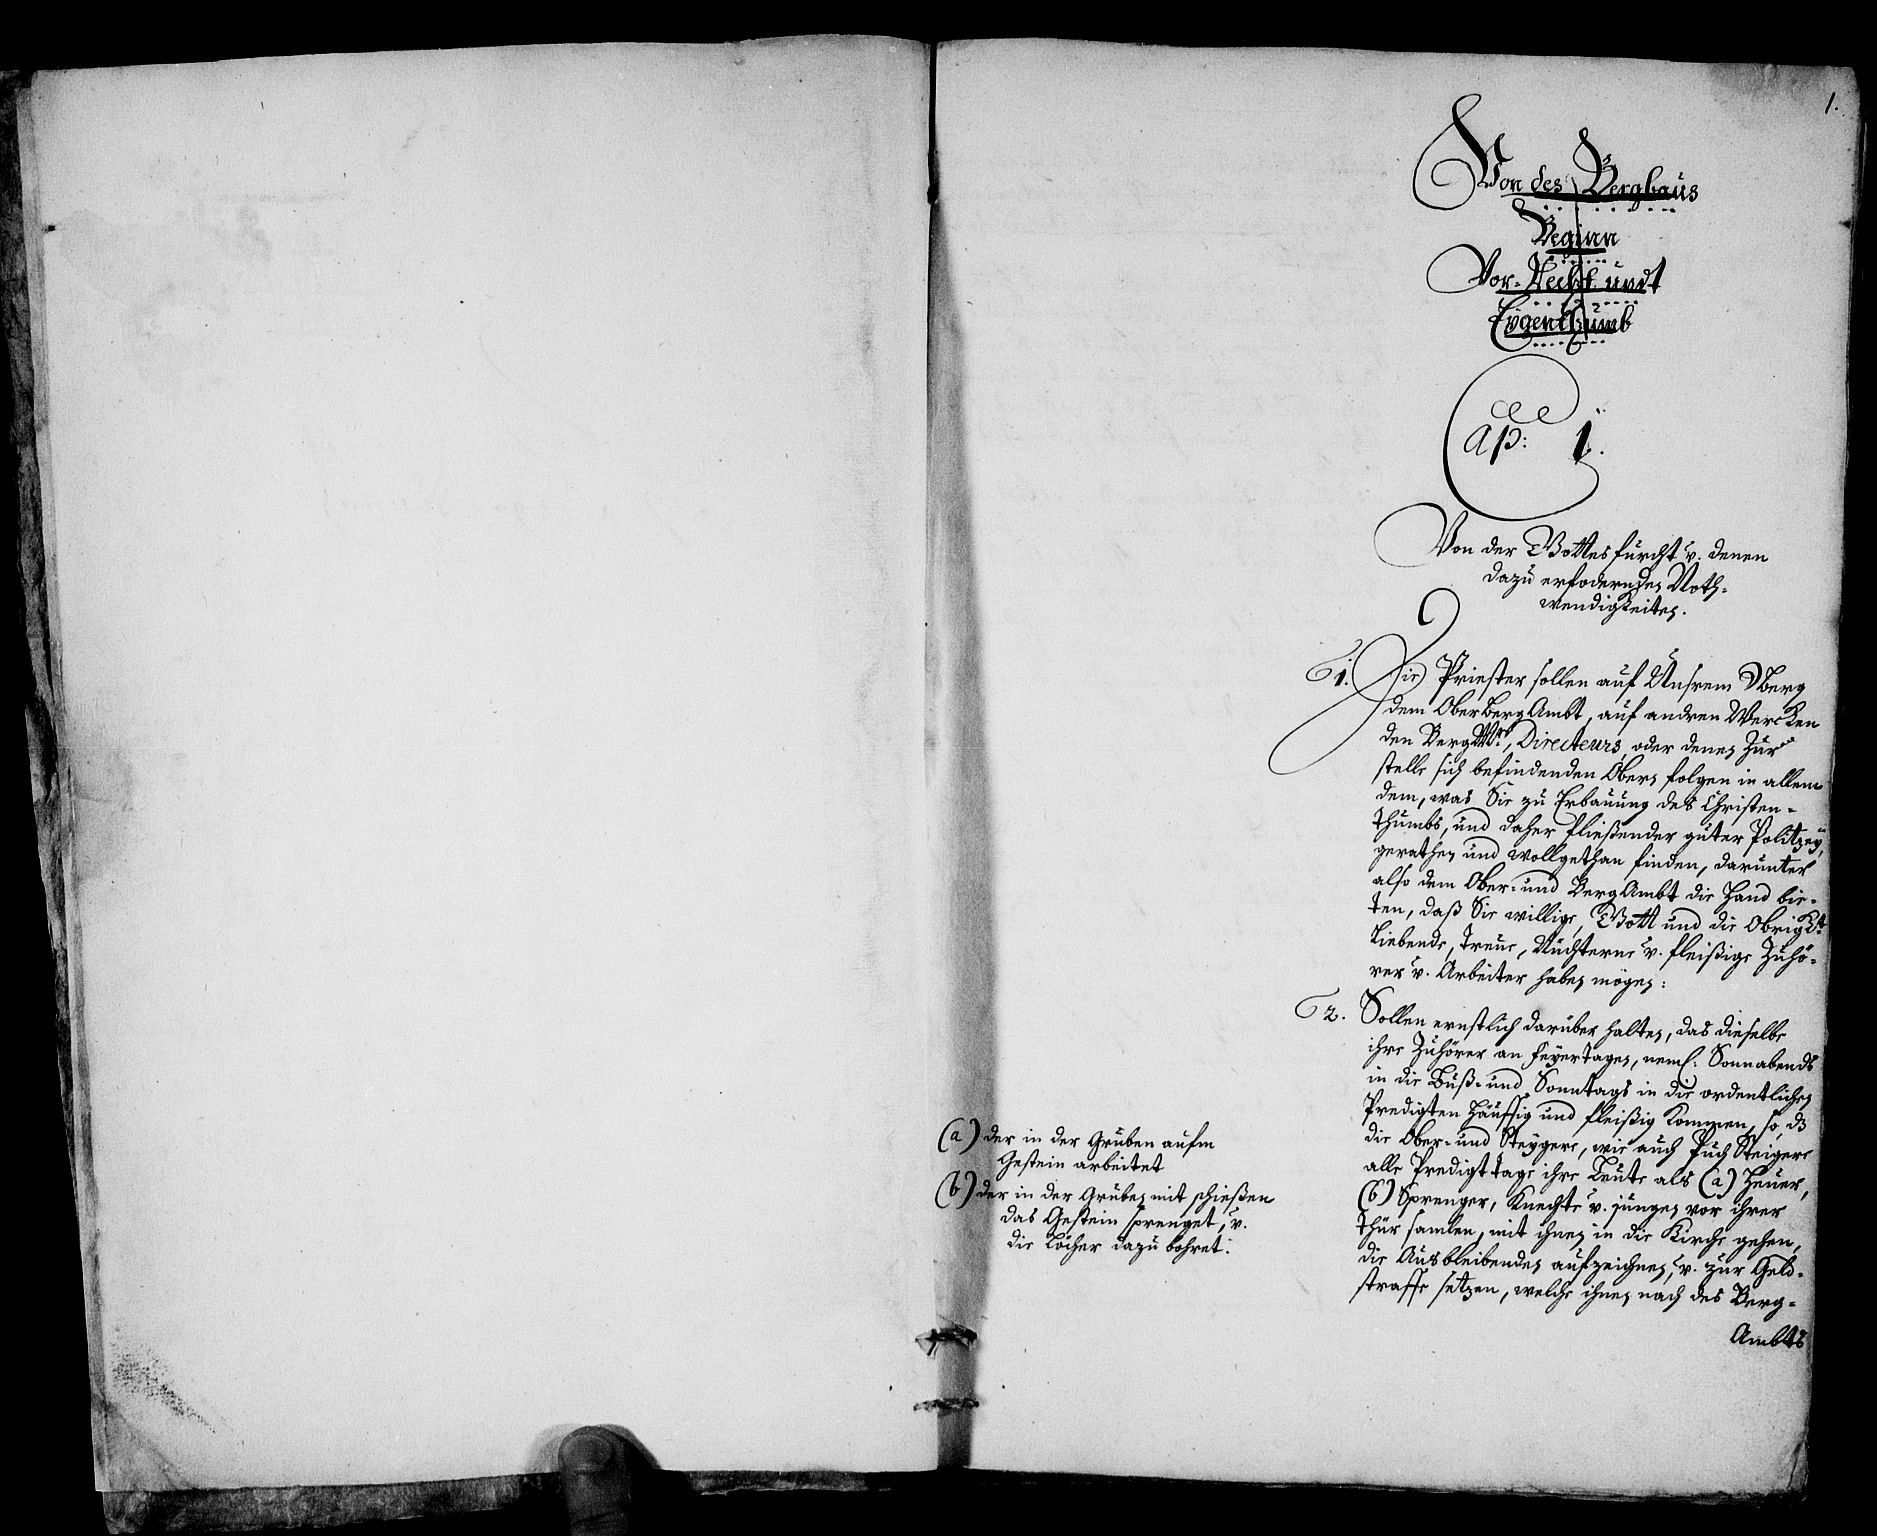 1.
Von des Bergbaus
Beginn
Vor-Recht undt
Eygenthumb
Cap: 1.
Von der Gottesfurcht v. denen
dazu erfodernden Noth-
wendigkeiten.
1. Die Priester sollen auf Unsrem Sberg
dem OberBergAmbt, auf andren Wercken
den BergMr, Directeurs, oder denen Zur
stelle sich befindenden Obern folgen in allem
dem, was Sie zu Erbauung des Christen-
thumbs, und daher fließender guter Politzey,
gerathen und wollgethan finden, darunter
also dem Ober- und BergAmbt die Hand bie-
ten, daß Sie willige, Gott und die Obrigkt.
Liebende, treue, Nüchterne v. fleißige Zuhö-
rer v. Arbeiter haben mögen:
2. Sollen ernstlich darüber halten, das dieselbe
ihre Zuhörer an Feyertagen, neml: Sonnabends
in die Buß- und Sonntags in die ordentlichen
Predigten häuffig und fleißig kommen, so, dz
die Ober- und Steygere, wie auch Puch Steigere
alle Predigttage ihre Leute als (a) Heuer,
(b) Sprenger, Knechte v. jungen vor ihrer
thür samlen, mit ihnen in die Kirche gehen,
die Ausbleibenden aufzeichnen, v. zur Geld-
straffe setzen, welche ihnen nach des Berg-
Ambts
(a) der in der Gruben aufm
Gestein arbeitet
(b) der in der Gruben mit schießen
das Gestein sprenget, v.
die Löcher dazu bohret.